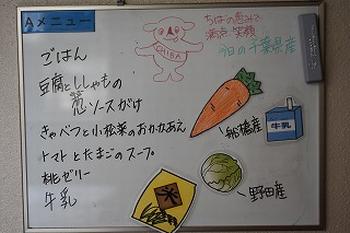 Aメニュー
ごはん
豆腐とししゃもの
葱ソースがけ
きゃべつと小松菜のおかかあえ
トマトとたまごのスープ
桃ゼリー
牛乳
ちばの恵みで
満点笑顔
今日の千葉県産
CHIBA
船橋産
牛乳
野田産
米